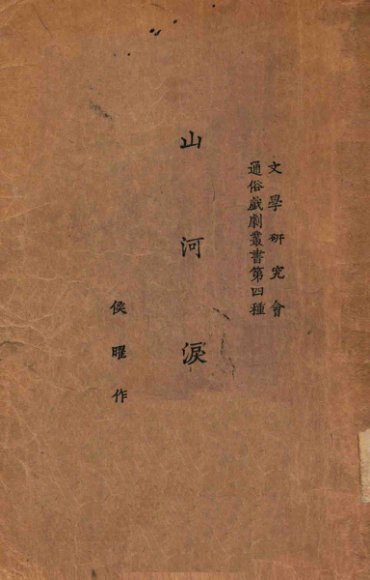 文學研究會
通俗戲劇叢書第四種
山河淚
侯曜作